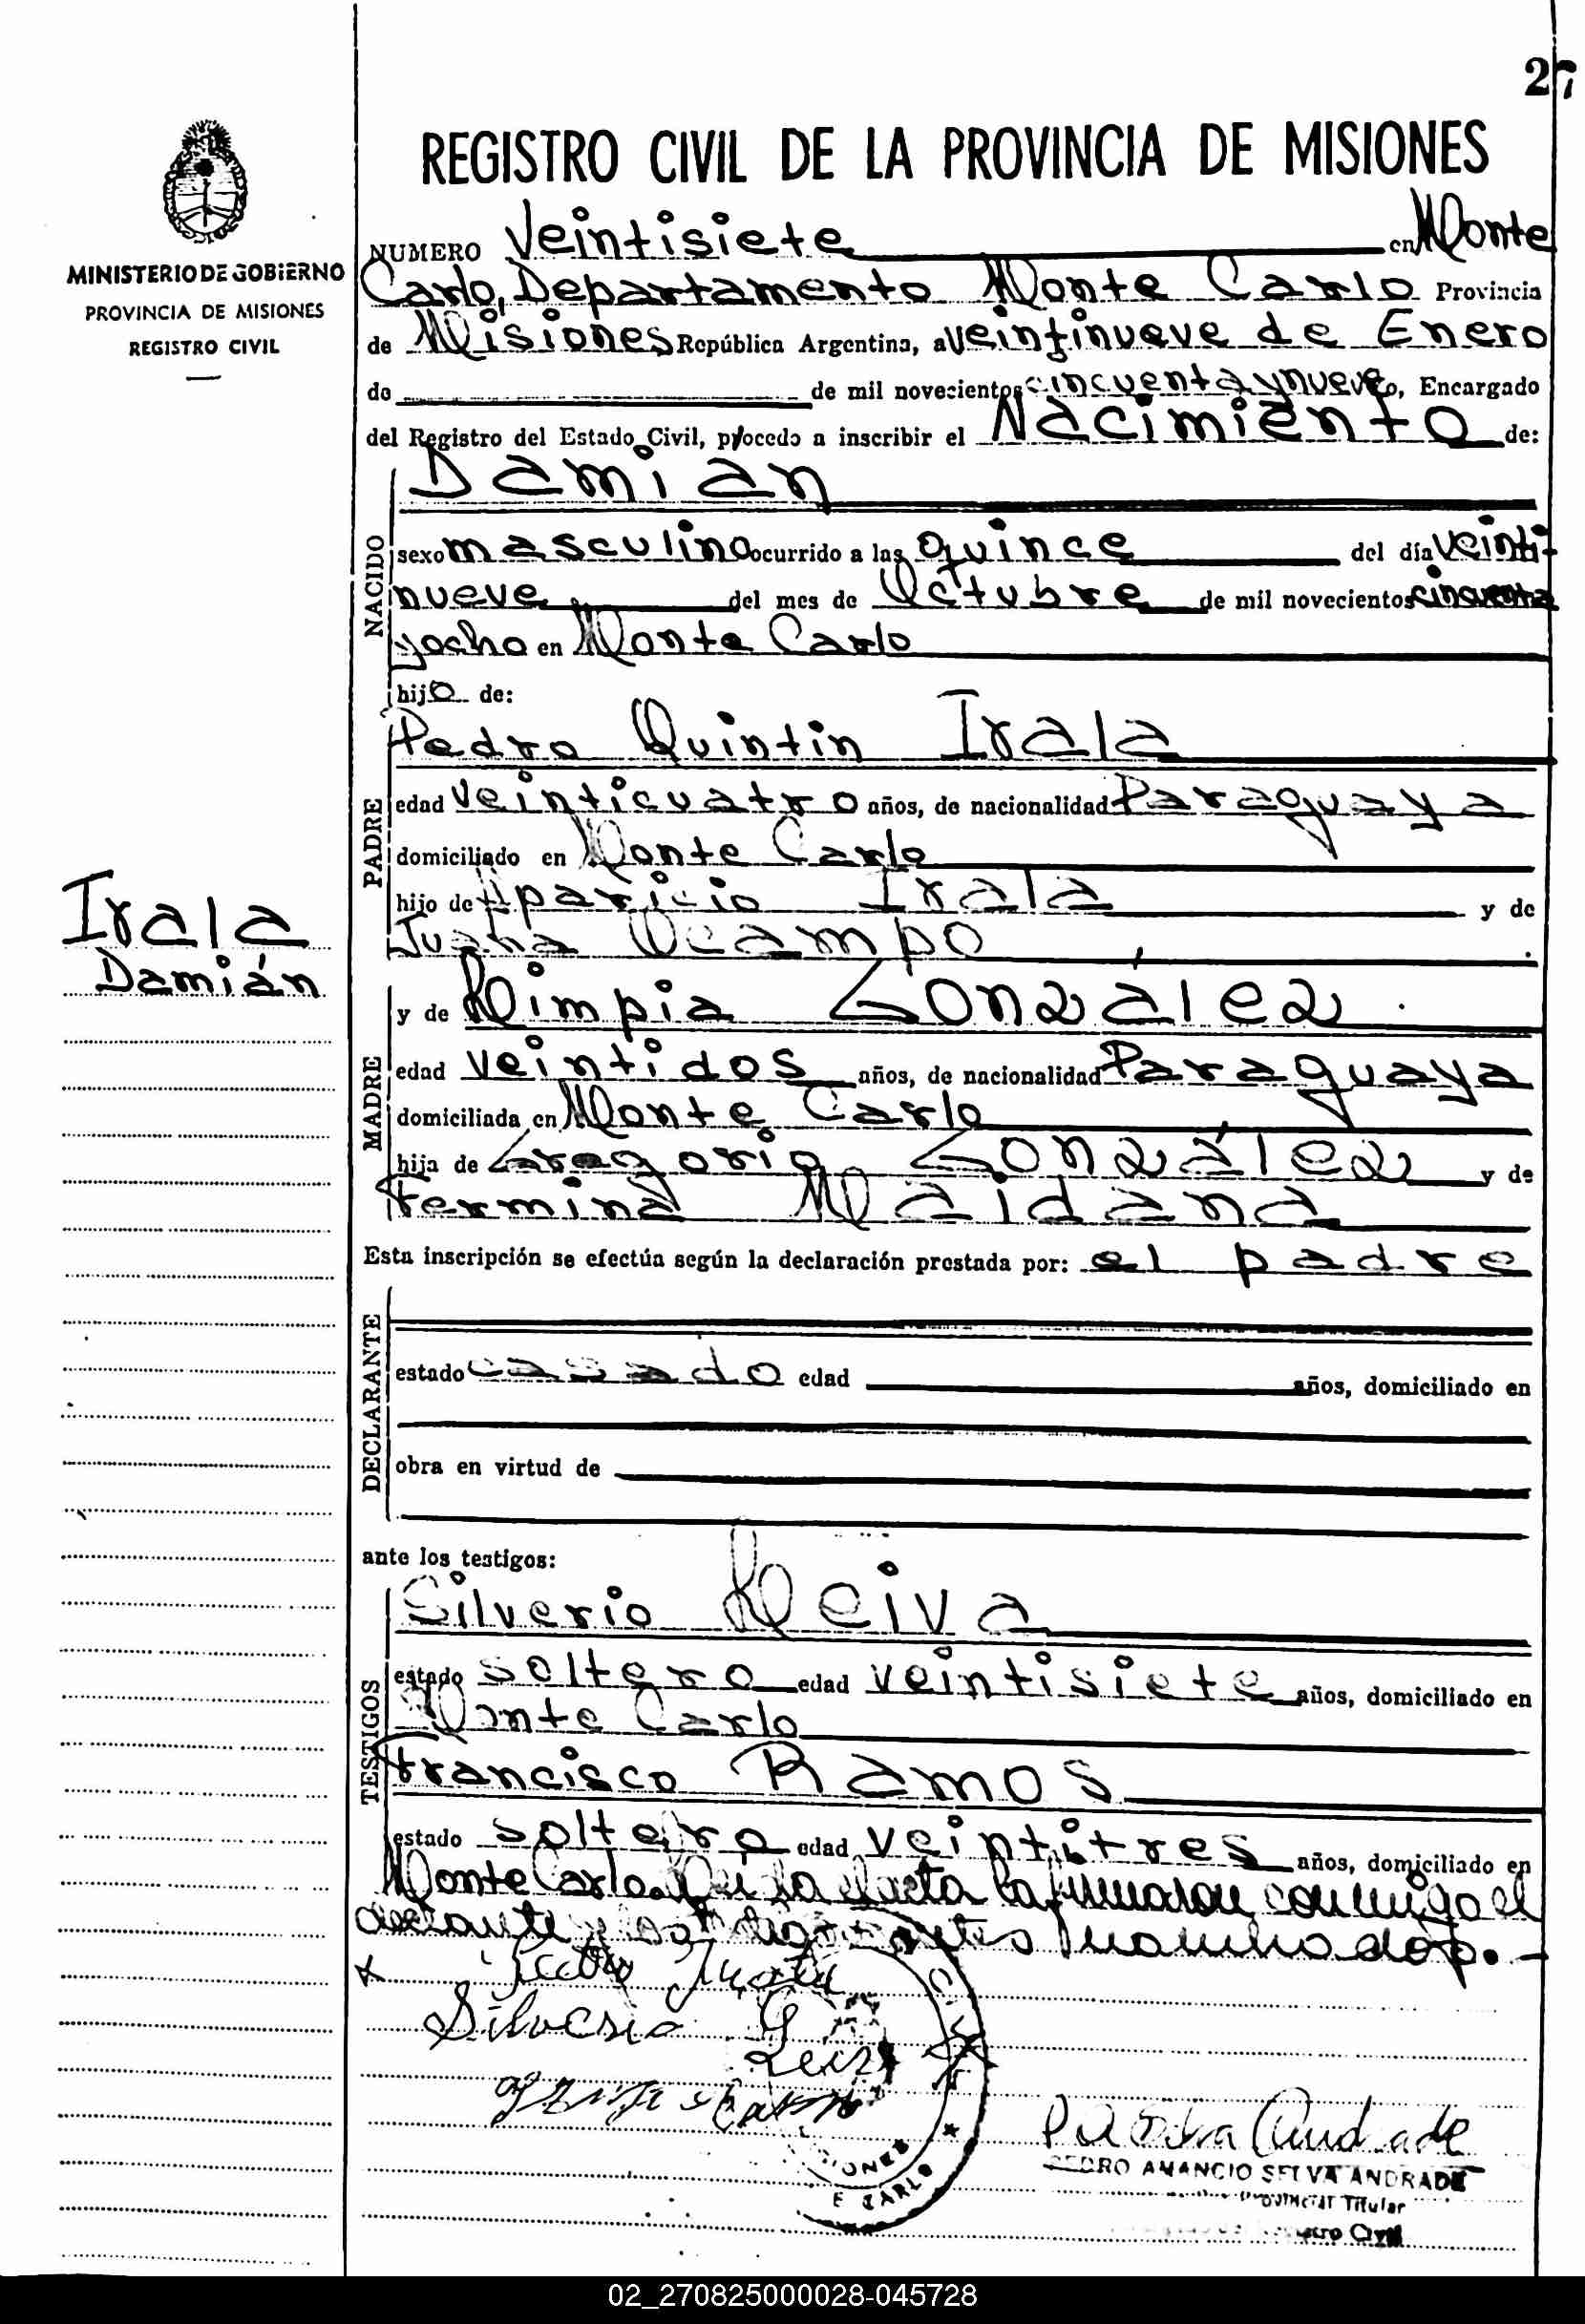 27
REGISTRO CIVIL DE LA PROVINCIA DE MISIONES
MINISTERIO DE GOBIERNO
PROVINCIA DE MISIONES
REGISTRO CIVIL
NUMERO Veintisiete en Monte
Carlo, Departamento Monte Carlo Provincia
de Misiones República Argentina, a veintinueve de Enero
de de mil novecientos cincuenta y nueve, Encargado
del Registro del Estado Civil, procedo a inscribir el Nacimiento de:
NACIDO
Damian
sexo masculino ocurrido a las quince del día veinti-
nueve del mes de Octubre de mil novecientos cincuenta
y ocho en Monte Carlo
hijo de:
PADRE
Pedro Quintin Irala
edad veinticuatro años, de nacionalidad Paraguaya
domiciliado en Monte Carlo
hijo de Aparicio Irala y de
Juana Ocampo
Irala
Damián
MADRE
y de Olimpia González
edad veintidos años, de nacionalidad Paraguaya
domiciliada en Monte Carlo
hija de Gregorio González y de
Fermina Maidana
Esta inscripción se efectúa según la declaración prestada por: el padre
DECLARANTE
estado casado edad años, domiciliado en
obra en virtud de
ante los testigos:
TESTIGOS
Silverio Leiva
estado soltero edad veintisiete años, domiciliado en
Monte Carlo
Francisco Ramos
estado soltero edad veintitres años, domiciliado en
Monte Carlo. acta la firmaron conmigo el
y los
Silverio
PEDRO AMANCIO SELVA ANDRADE
Provincial Titular
Registro Civil
02_270825000028-045728